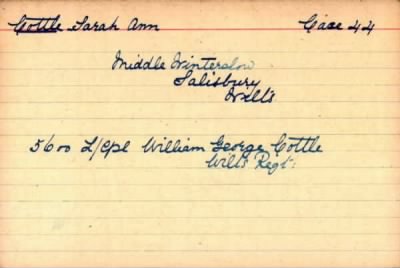 Cottle Sarah Ann Case 44
Middle Winterslow
Salisbury
Wilts
5600 L/Cpl William George Cottle
Wilts Regt: